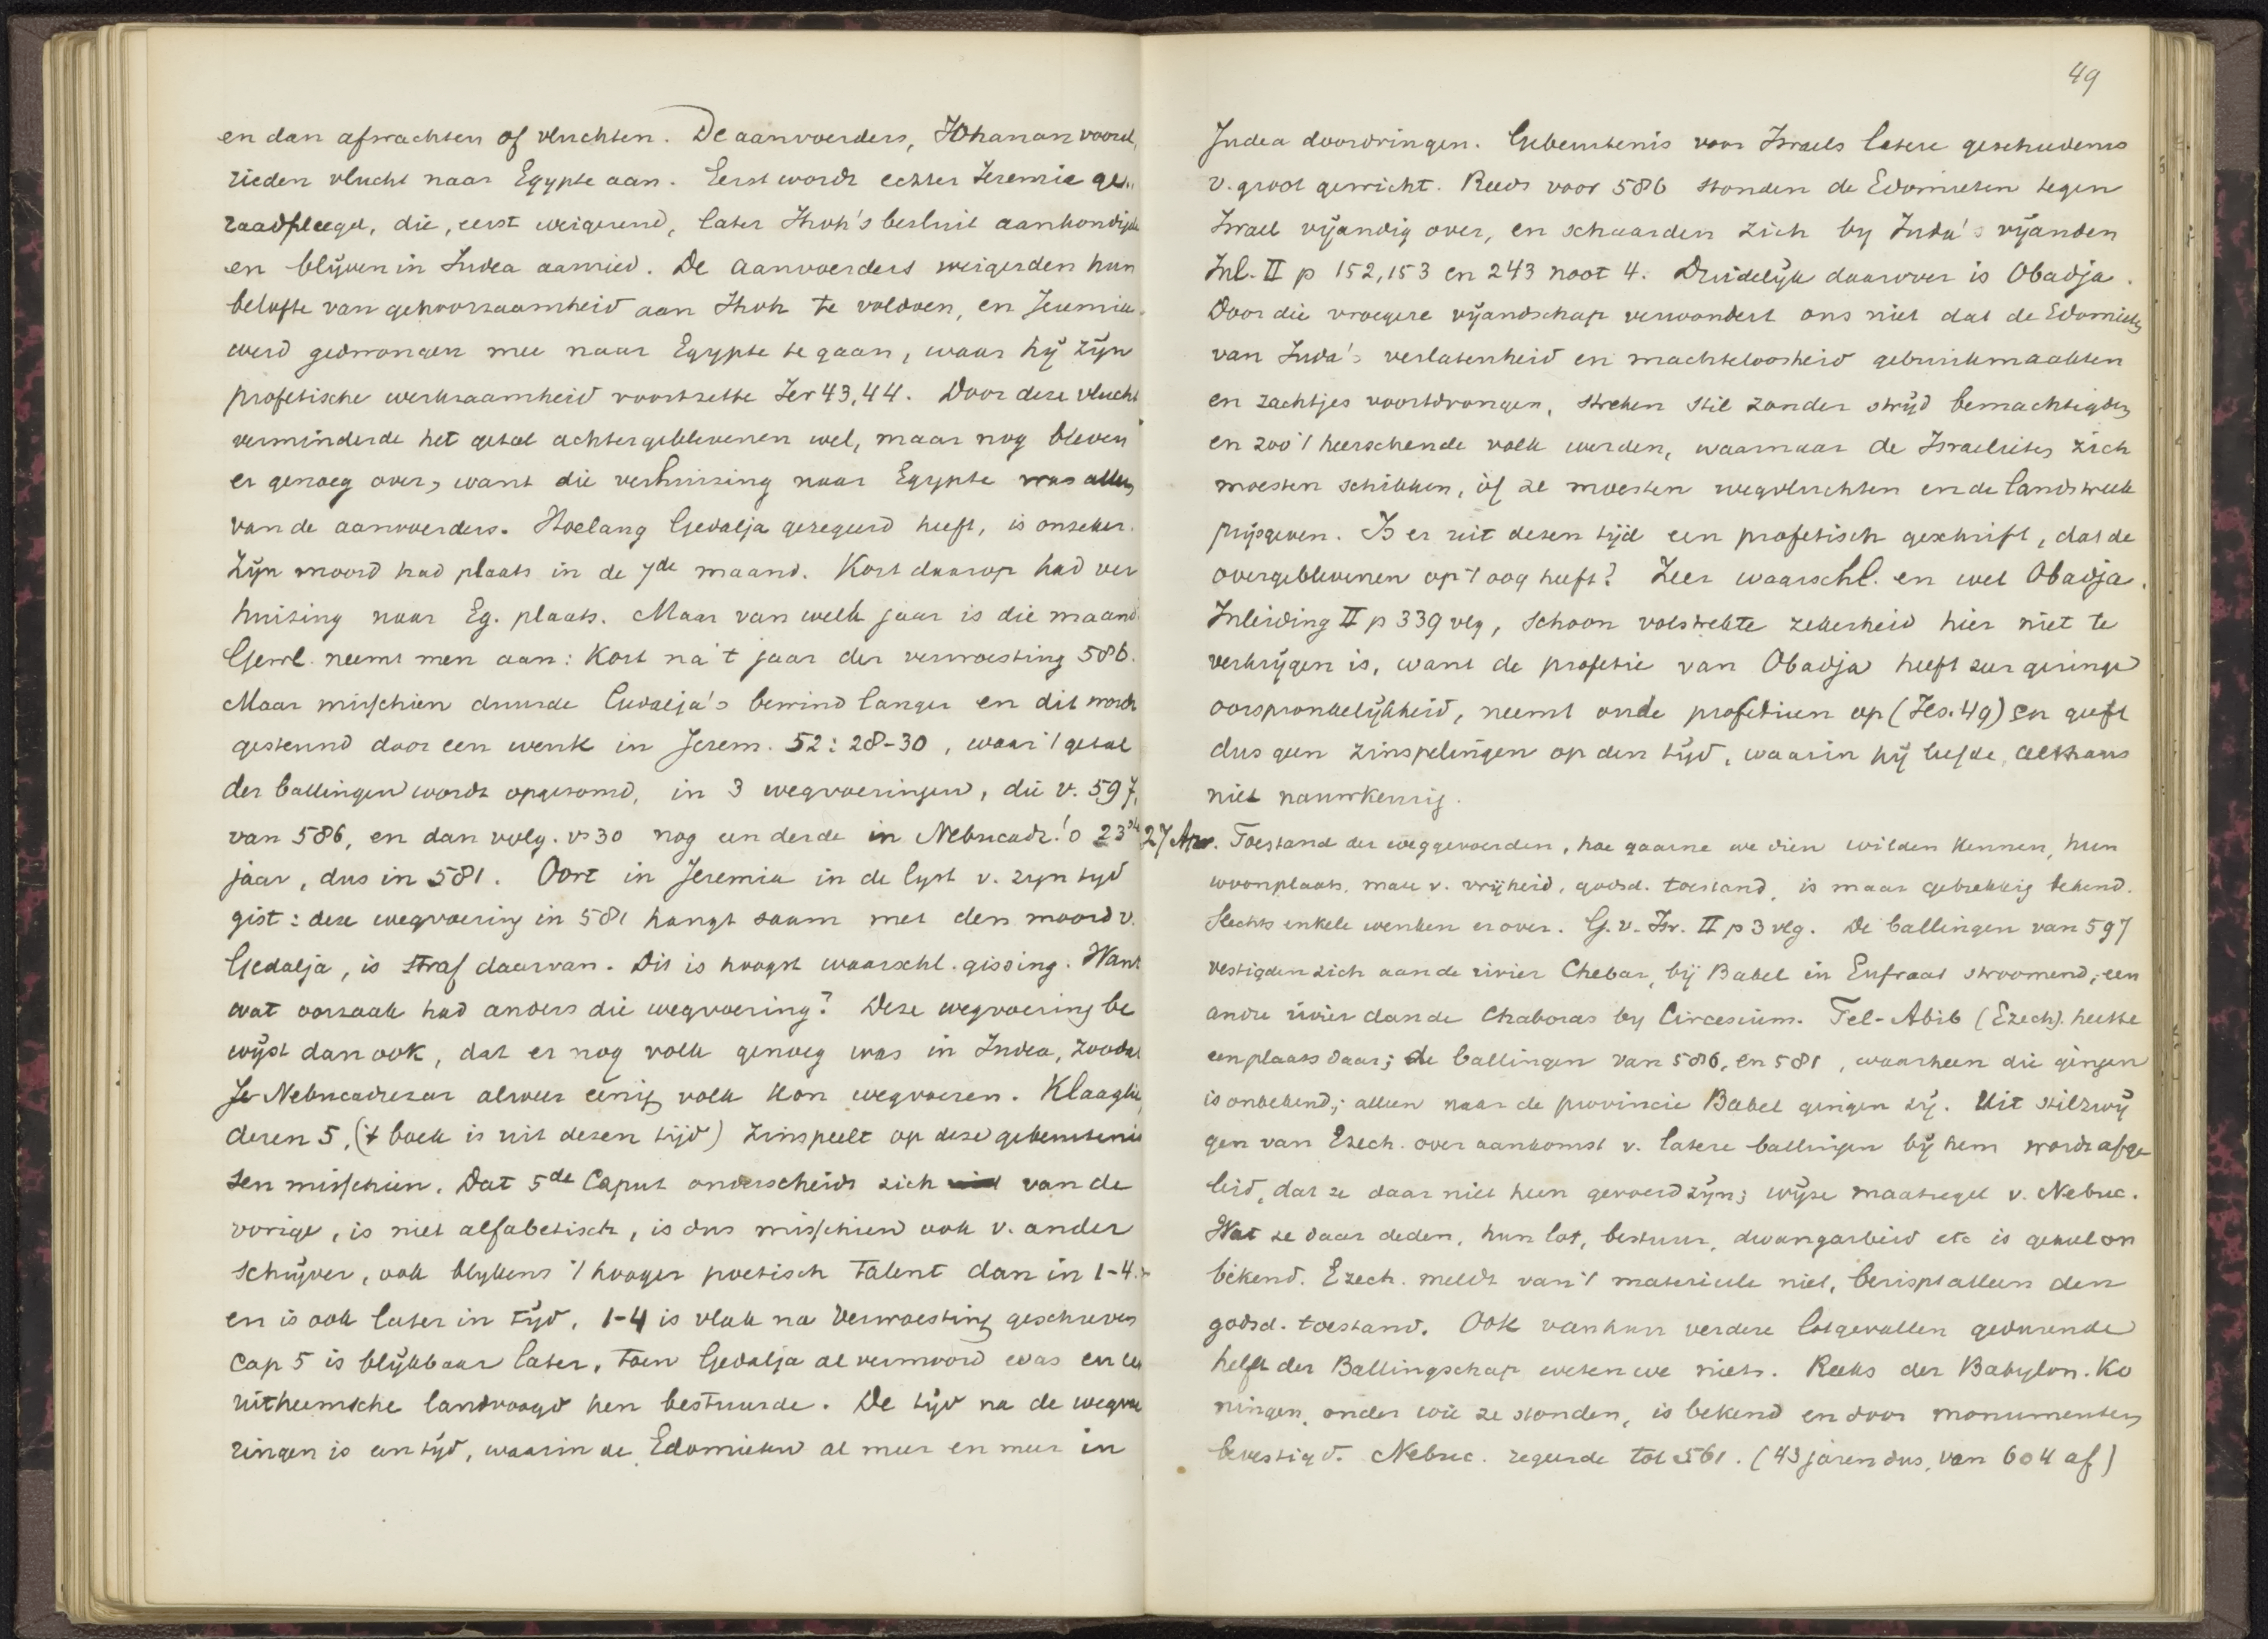 en dan afwachten of vluchten. De aanvoerders, Johanan voord,
rieden vlucht naar Egypte aan. Eerst wordt echter Jeremia ge„
raadpleegd, die, eerst weigerend, later Jhvh's besluit aankondigde
en blijven in Judea aanried. De aanvoerders weigerden hun
belofte van gehoorzaamheid aan Jhvh te voldoen, en Jeremia
werd gedwongen mee naar Egypte te gaan, waar hij zijn
profetische werkzaamheid voortzette Jer 43,44. Door deze vlucht
verminderde het getal achtergeblevenen wel, maar nog bleven
er genoeg over, want die verhuizing naar Egypte was alleen
van de aanvoerders. Hoelang Gedalja geregeerd heeft, is onzeker.
Zijn moord had plaats in de 7de maand. Kort daarop had ver
huizing naar Eg. plaats. Maar van welk jaar is die maand
Gewl. neemt men aan: Kort na 't jaar der verwoesting 586.
Maar misschien duurde Gedalja's bewind langer en dit wordt
gesteund door een wenk in Jerem. 52:28-30, waar 't getal
der ballingen wordt opgesomd, in 3 wegvoeringen, die v. 597,
van 586, en dan volg. vs 30 nog een derde in Nebucadr.'s 23ste
jaar, dus in 581. Oort in Jeremia in de lyst v. zyn tyd
gist: deze wegvoering in 581 hangt saam met den moord v.
Gedalja, is straf daarvan. Dit is hoogst waarschl. gissing. Want
wat oorzaak had anders die wegvoering? Deze wegvoering be
wijst dan ook, dat er nog volk genoeg was in Judea, zoodat
Nebucadrezar alweer eenig volk kon wegvoeren. Klaaglie
deren 5, ('t boek is uit dezen tijd) zinspeelt op deze gebeurtenis
sen misschien. Dat 5de Caput onderscheidt zich van de
vorige, is niet alfabetisch, is dus misschien ook v. ander
schrijver, ook blykens 't hooger poetisch talent dan in 1-4.
en is ook later in tijd, 1-4 is vlak na Verwoesting geschreven
Cap 5 is blijkbaar later, toen Gedalja al vermoord was en
uitheemsche landvoogd hen bestuurde. De tijd na de wegvoe
ringen is een tijd, waarin de Edomieten al meer en meer in
49
Judea doordringen. Gebeurtenis voor Israels latere geschiedenis
v. groot gewicht. Reeds voor 586 stonden de Edomieten tegen
Israel vijandig over, en schaarden zich by Juda's vijanden
Inl. II p 152, 153 en 243 noot 4. Duidelijk daarover is Obadja.
Door die vroegere vijandschap verwondert ons niet dat de Edomieten
van Juda's verlatenheid en machteloosheid gebruikmaakten
en zachtjes voortdrongen, streken stil zonder strijd bemachtigden
en zoo 't heerschende volk werden, waarnaar de Israelieten zich
moesten schikken, òf ze moesten wegvluchten en de landstreek
prijsgeven. Is er uit dezen tijd een profetisch geschrift, dat de
overgeblevenen op 't oog heeft? Zeer waarschl. en wel Obadja.
Inleiding II p 339 vlg, schoon volstrekte zekerheid hier niet te
verkrijgen is, want de profetie van Obadja heeft zeer geringe
oorspronkelijkheid, neemt oude profetieen op (Jes. 49) en geeft
dus geen zinspelingen op den tijd, waarin hij leefde, althans
niet nauwkeurig.
27 Apr. Toestand der weggevoerden, hoe gaarne we dien wilden kennen, hun
woonplaats, mate v. vrijheid, godsd. toestand, is maar gebrekkig bekend.
Slechts enkele wenken er over. G. v. Isr. II p 3 vlg. De ballingen van 597
vestigden zich aan de rivier Chebar, bij Babel in Eufraat stroomend, een
andre rivier dan de Chaboras by Circesium. Tel-Abib (Ezech). heette
een plaats daar; de ballingen van 586, en 581, waarheen die gingen
is onbekend; alleen naar de provincie Babel gingen zij. Uit stilzwij
gen van Ezech. over aankomst v. latere ballingen bij hem wordt afge
leid, dat ze daar niet heen gevoerd zijn; wijze maatregel v. Nebuc.
Wat ze daar deden, hun lot, bestuur, dwangarbeid etc is geheel on
bekend. Ezech. meldt van 't materieele niet, berispt alleen den
godsd. toestand. Ook van hun verdere lotgevallen gedurende
helft der Ballingschap weten we niets. Reeks der Babylon. Ko
ningen, onder wie ze stonden, is bekend en door monumenten
bevestigd. Nebuc. regeerde tot 561. (43 jaren dus, van 604 af)